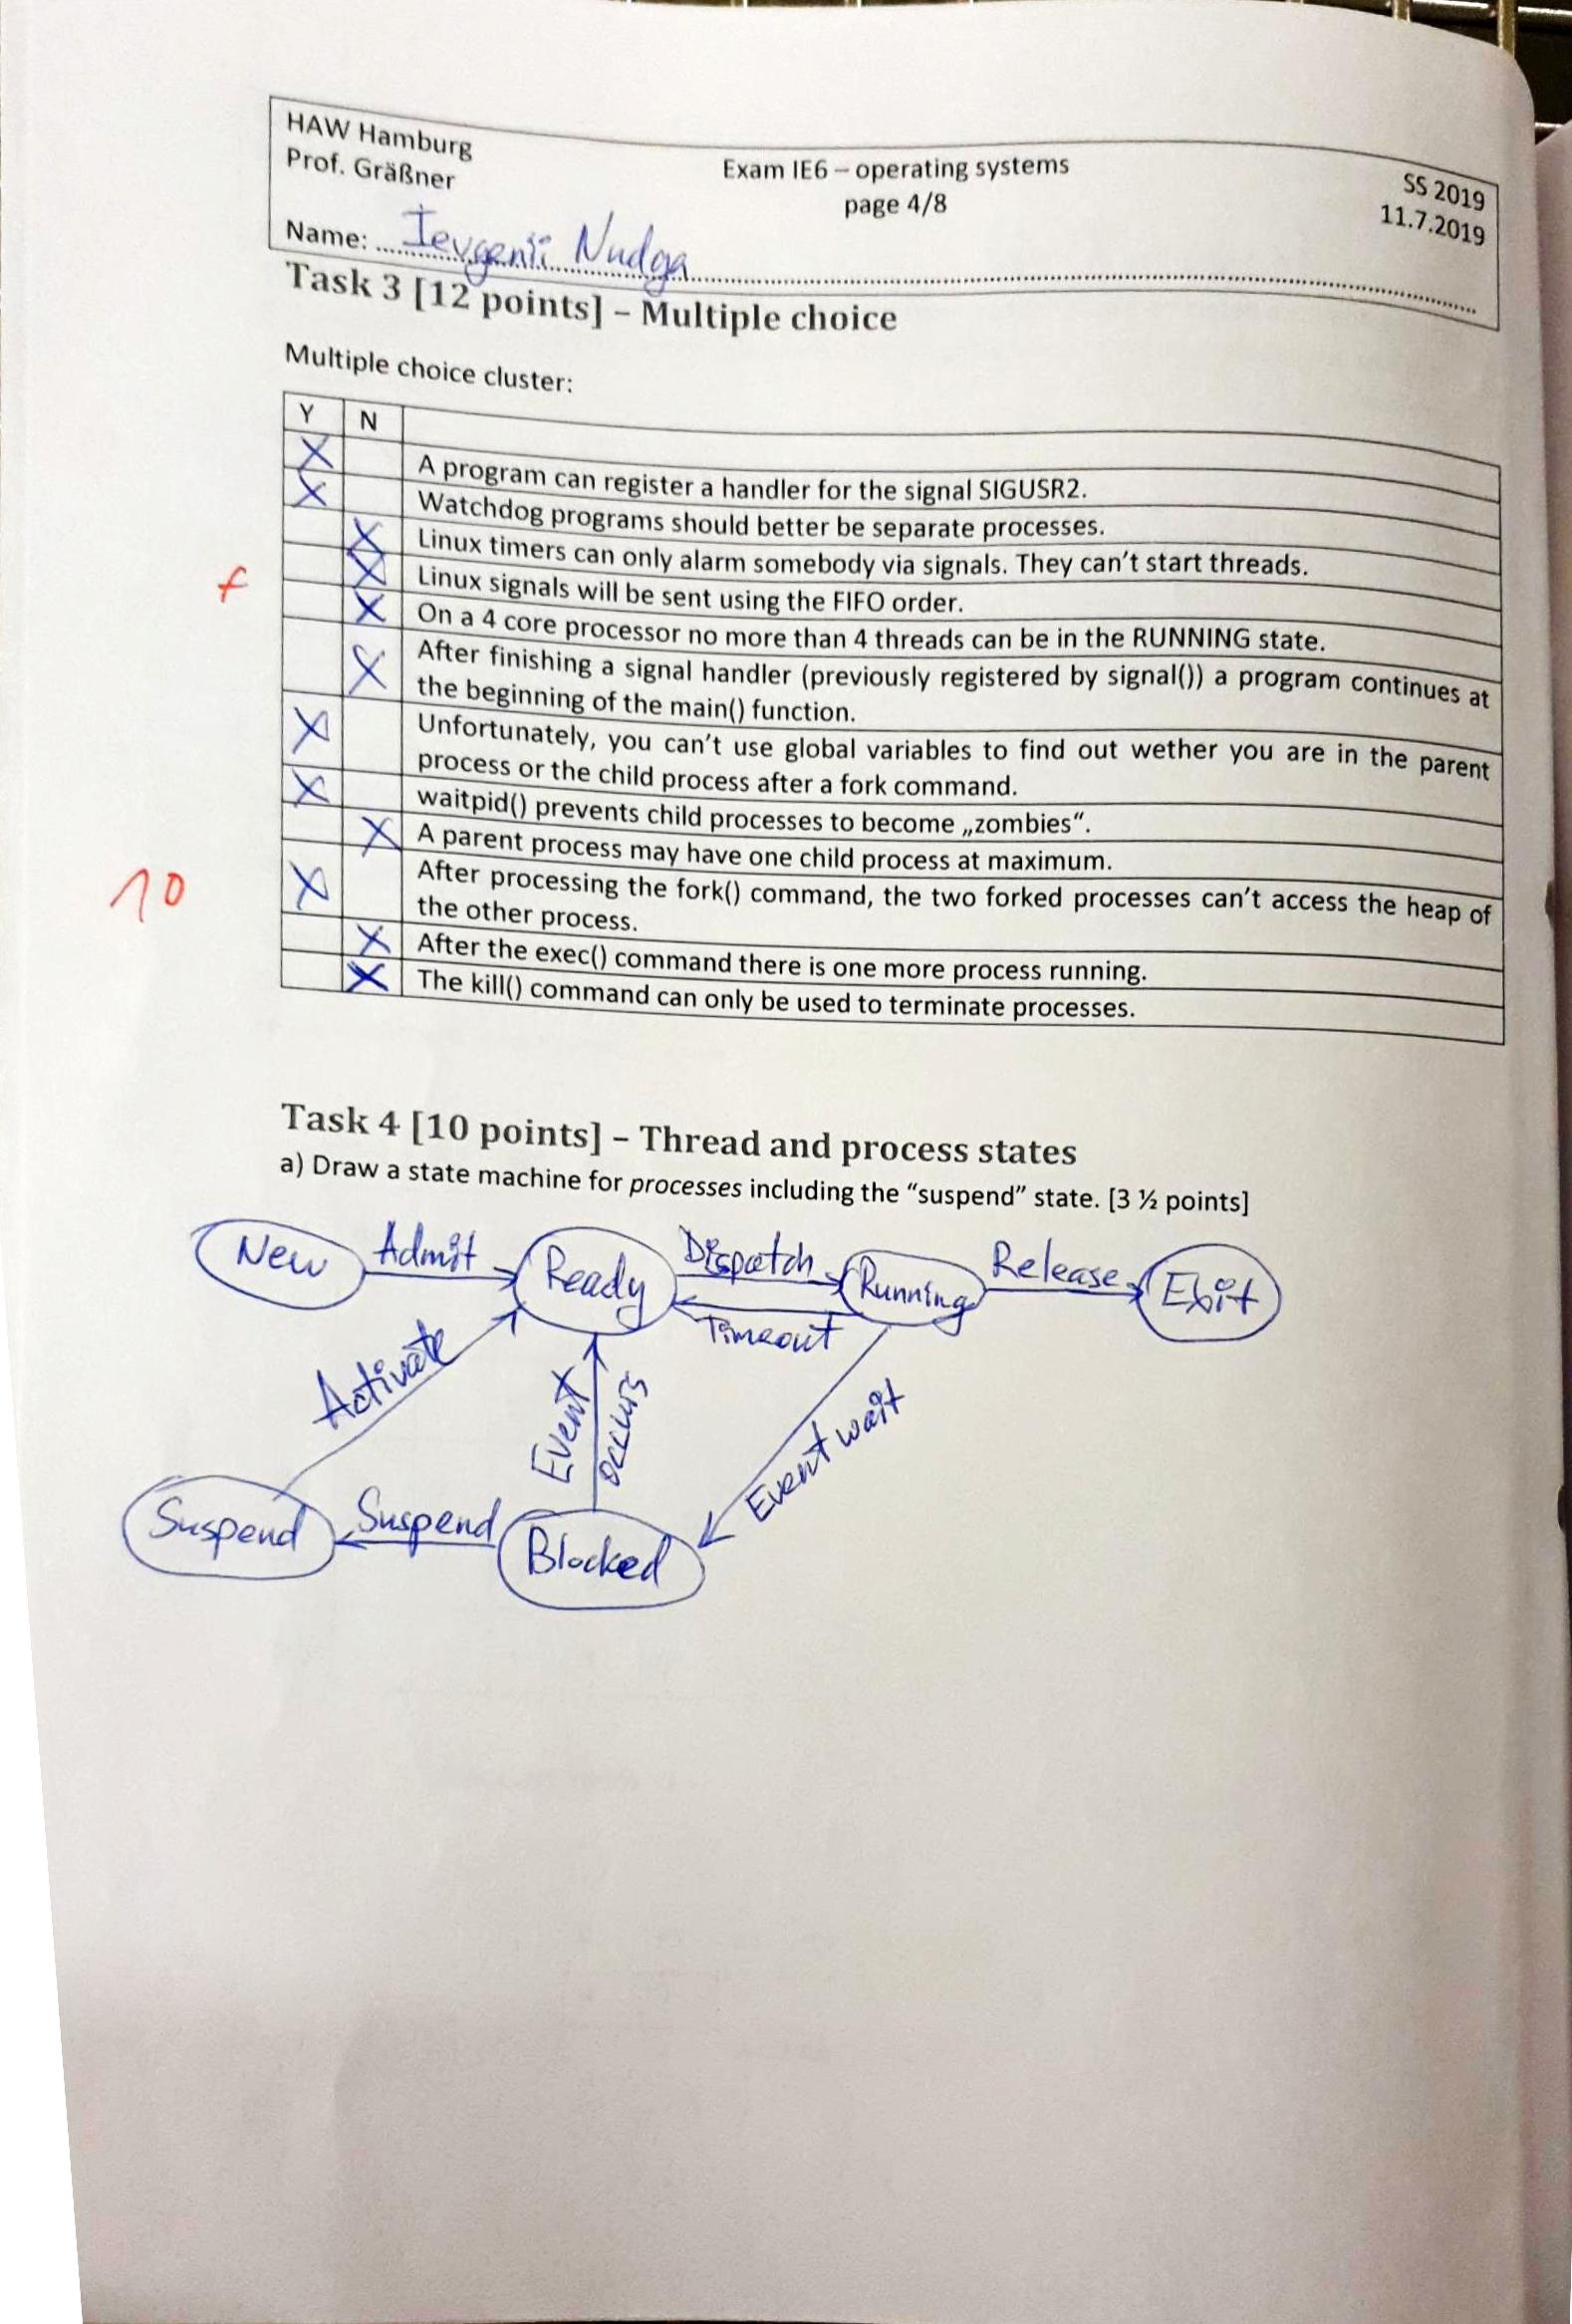 HAW Hamburg
Prof. Gräßner
Exam IE6 – operating systems
page 4/8
SS 2019
11.7.2019
Name: Ievgenii Nudga
Task 3 [12 points] – Multiple choice
Multiple choice cluster:
Y N
X A program can register a handler for the signal SIGUSR2.
X Watchdog programs should better be separate processes.
X Linux timers can only alarm somebody via signals. They can't start threads.
f X Linux signals will be sent using the FIFO order.
X On a 4 core processor no more than 4 threads can be in the RUNNING state.
X After finishing a signal handler (previously registered by signal()) a program continues at
the beginning of the main() function.
X Unfortunately, you can't use global variables to find out wether you are in the parent
process or the child process after a fork command.
X waitpid() prevents child processes to become „zombies“.
X A parent process may have one child process at maximum.
10 X After processing the fork() command, the two forked processes can't access the heap of
the other process.
X After the exec() command there is one more process running.
X The kill() command can only be used to terminate processes.
Task 4 [10 points] – Thread and process states
a) Draw a state machine for processes including the “suspend” state. [3 ½ points]
New Admit Ready Dispatch Running Release Exit
Timeout
Activate
Event occurs
Event wait
Suspend Suspend Blocked